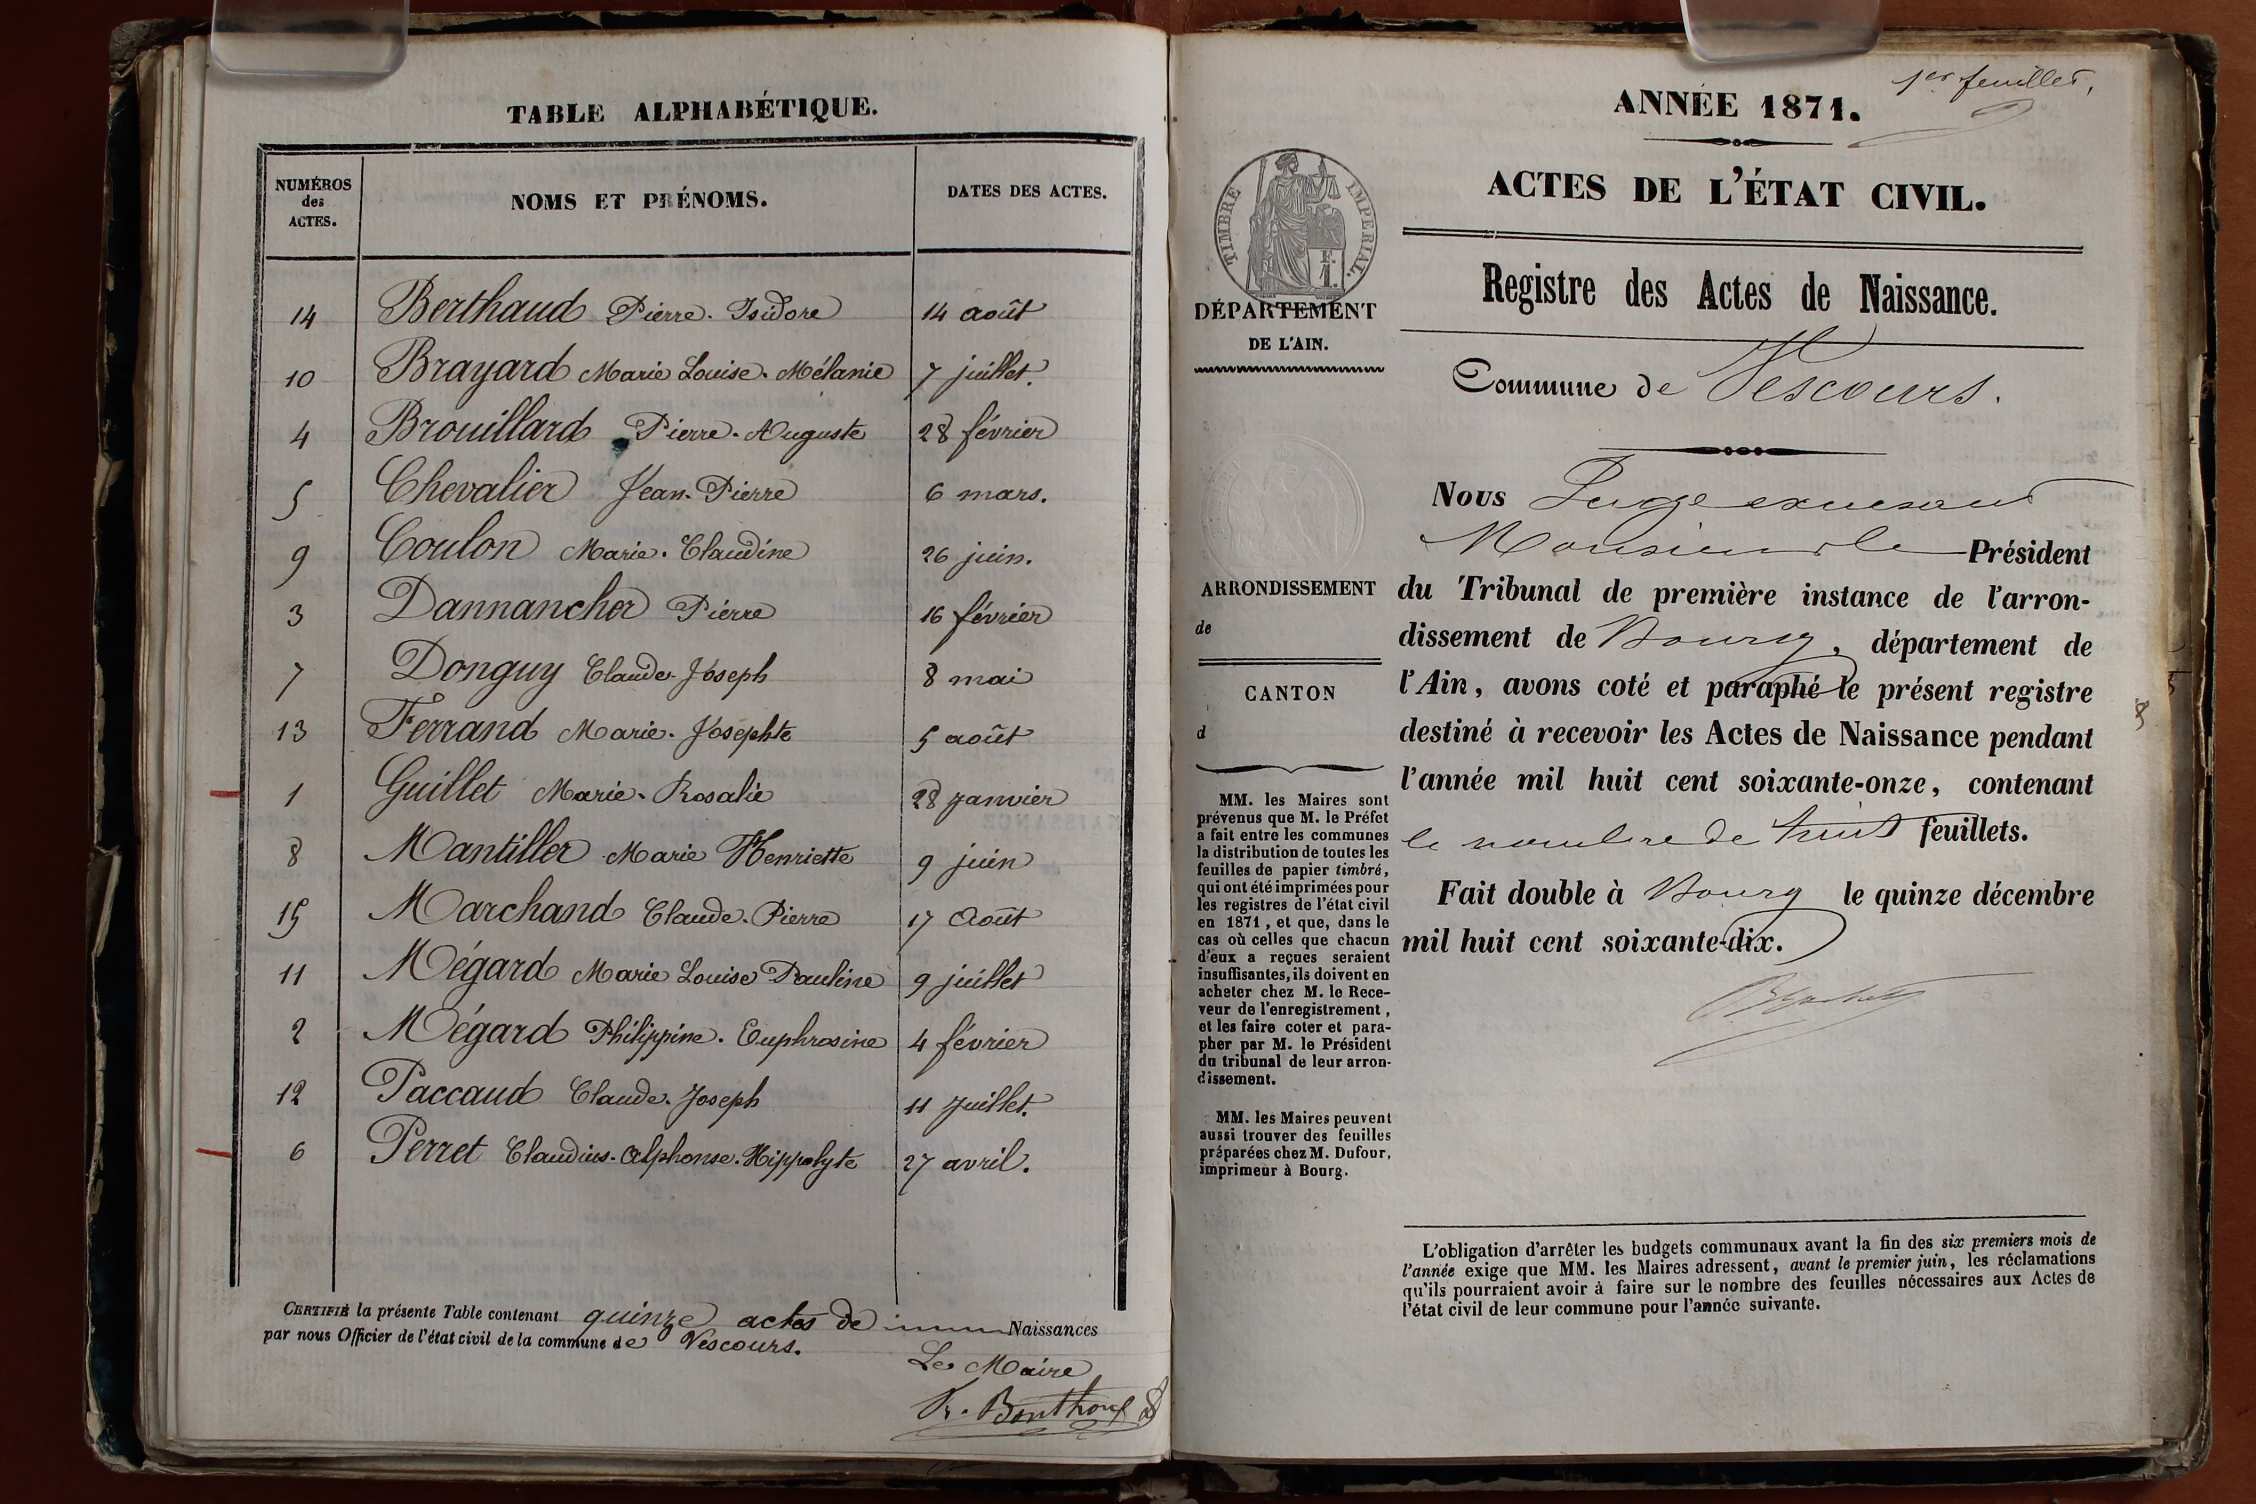 TABLE ALPHABÉTIQUE.
NUMÉROS des ACTES. NOMS ET PRÉNOMS. DATES DES ACTES.
14 Berthaud Pierre-Isidore 14 août
10 Brayard Marie Louise-Mélanie 7 juillet.
4 Brouillard Pierre-Auguste 28 février
5 Chevalier Jean-Pierre 6 mars.
9 Coulon Marie-Claudine 26 juin.
3 Dannancher Pierre 16 février
7 Donguy Claude-Joseph 8 mai
13 Ferrand Marie-Josephte 5 août
1 Guillet Marie-Rosalie 28 janvier
8 Mantiller Marie Henriette 9 juin
15 Marchand Claude-Pierre 17 Août
11 Mégard Marie Louise Pauline 9 juillet
2 Mégard Philippine-Euphrosine 4 février
12 Paccaud Claude-Joseph 11 Juillet.
6 Perret Claudius-Alphonse-Hippolyte 27 avril.
CERTIFIÉ la présente Table contenant quinze actes de Naissances
par nous Officier de l'état civil de la commune de Vescours.
Le Maire
1er feuillet,
ANNÉE 1871.
ACTES DE L'ÉTAT CIVIL.
TIMBRE IMPÉRIAL.
F. 1.
DÉPARTEMENT
DE L'AIN.
Registre des Actes de Naissance.
Commune de Vescours.
Nous Juge
Monsieur le Président
du Tribunal de première instance de l'arron-
dissement de Bourg, département de
l'Ain, avons coté et paraphé le présent registre
destiné à recevoir les Actes de Naissance pendant
l'année mil huit cent soixante-onze, contenant
le nombre de huit feuillets.
Fait double à Bourg le quinze décembre
mil huit cent soixante-dix.
ARRONDISSEMENT
de
CANTON
d
MM. les Maires sont
prévenus que M. le Préfet
a fait entre les communes
la distribution de toutes les
feuilles de papier timbré,
qui ont été imprimées pour
les registres de l'état civil
en 1871, et que, dans le
cas où celles que chacun
d'eux a reçues seraient
insuffisantes, ils doivent en
acheter chez M. le Rece-
veur de l'enregistrement,
et les faire coter et para-
pher par M. le Président
du tribunal de leur arron-
dissement.
MM. les Maires peuvent
aussi trouver des feuilles
préparées chez M. Dufour,
imprimeur à Bourg.
L'obligation d'arrêter les budgets communaux avant la fin des six premiers mois de
l'année exige que MM. les Maires adressent, avant le premier juin, les réclamations
qu'ils pourraient avoir à faire sur le nombre des feuilles nécessaires aux Actes de
l'état civil de leur commune pour l'année suivante.